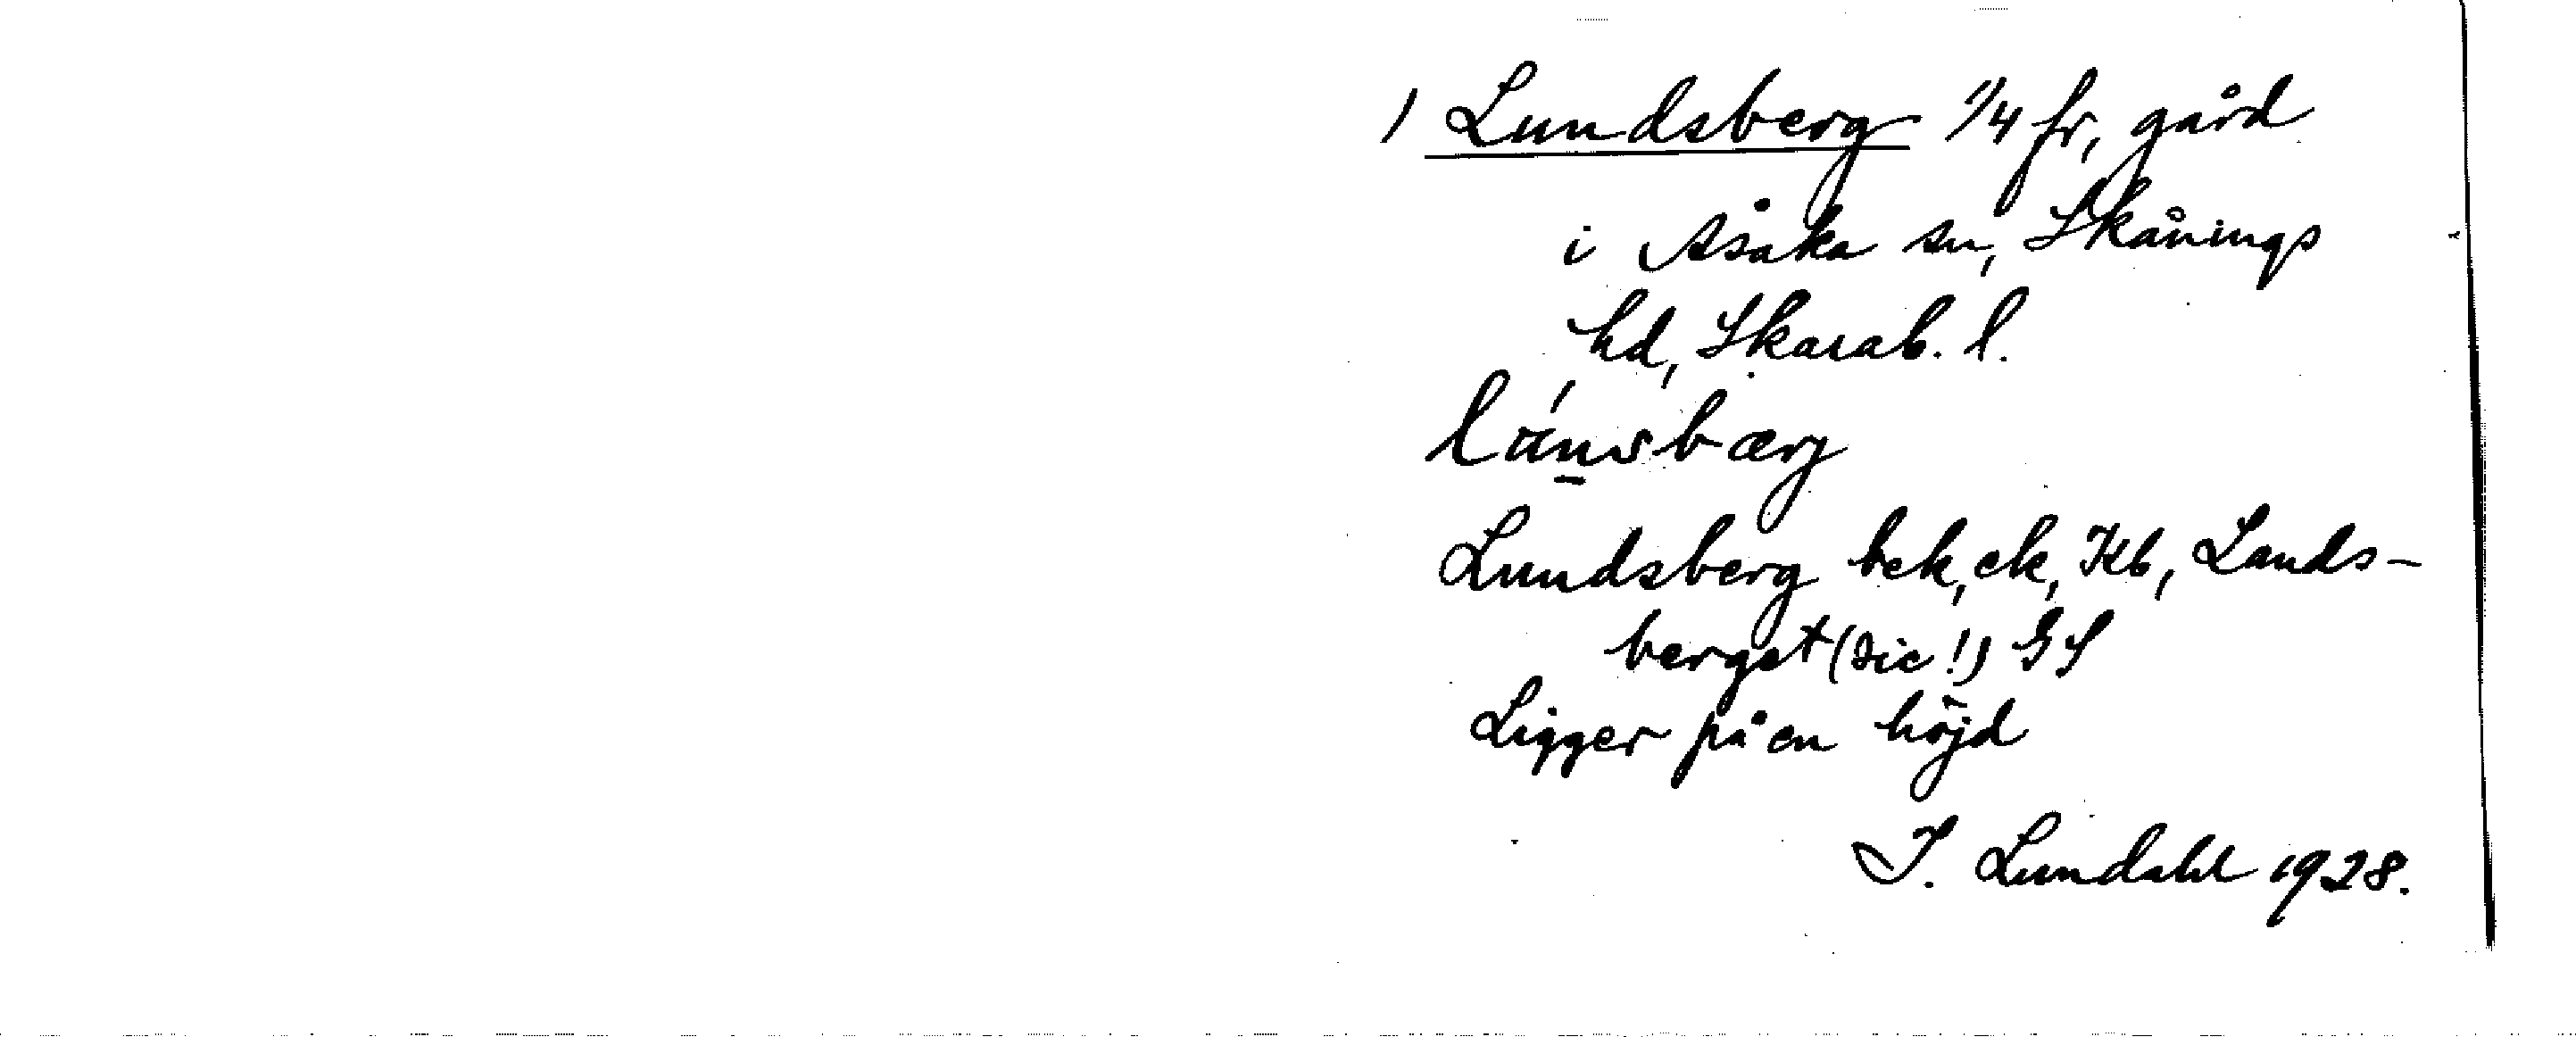 1 Lundsberg 1/4 fr, gård
i Åsaka sn, Skånings
hd, Skarab. l.
Lundsberg bek, ek, Kb, Lands-
berget (sic!) GS
Ligger på en höjd
I. Lundahl 1928.